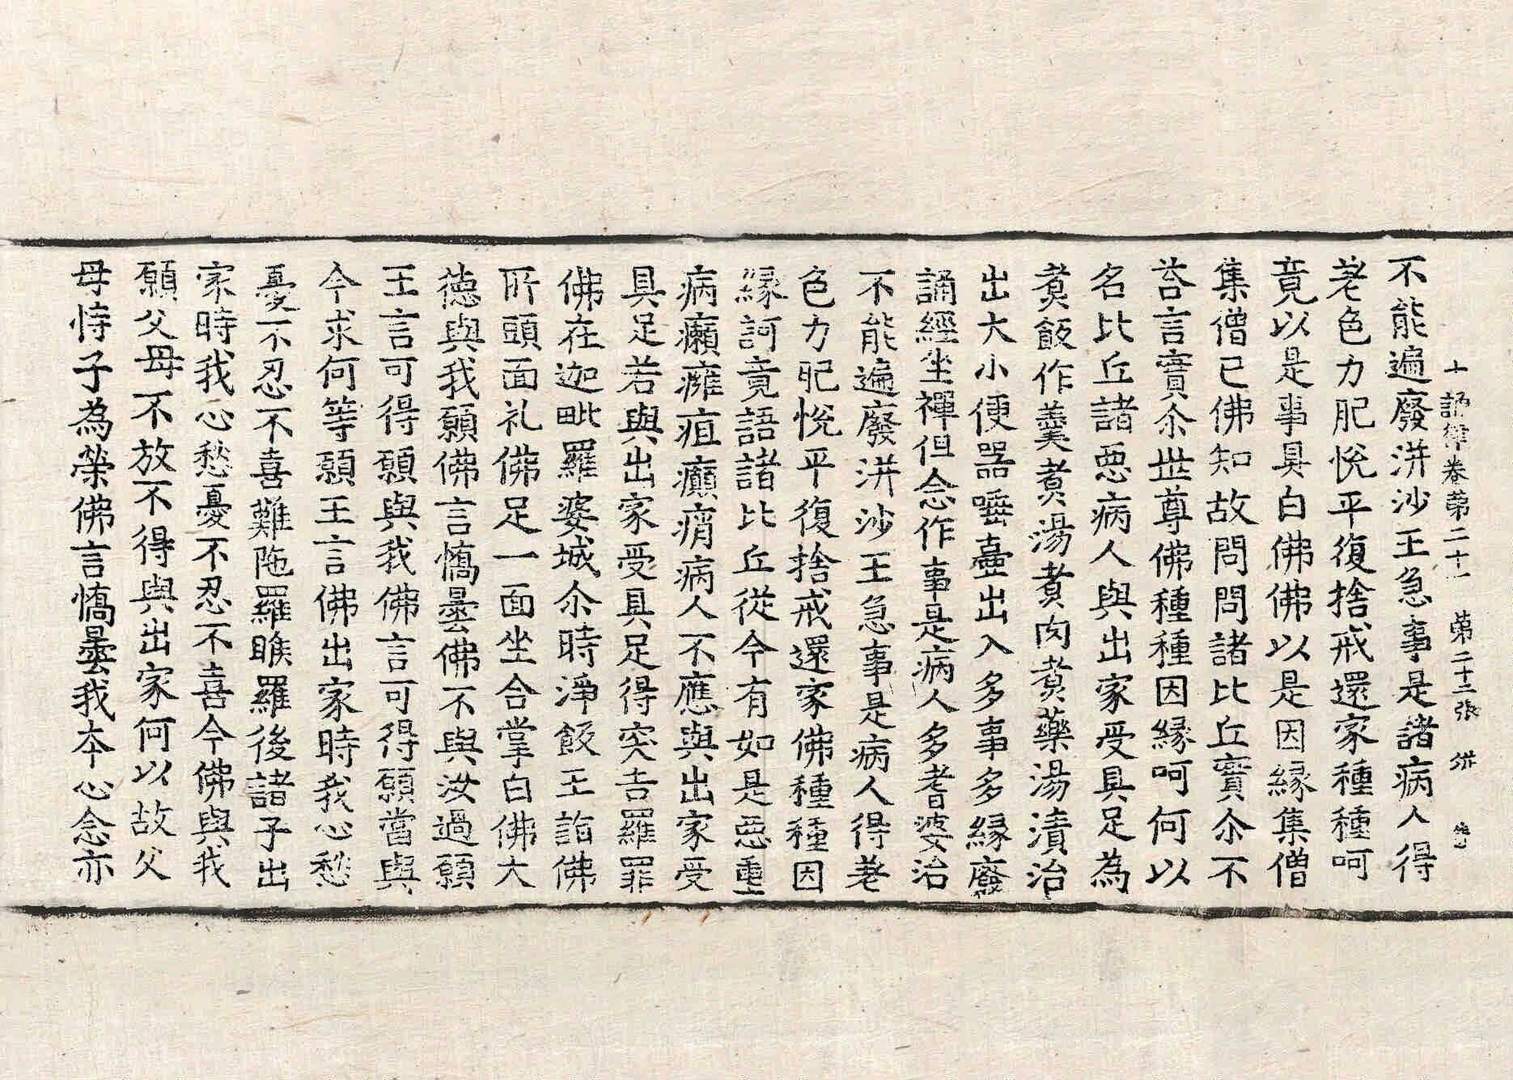 十誦律卷第二十一 第二十二張
不能遍廢洴沙王急事是諸病人得
差色力肥悅平復捨戒還家種種呵
竟以是事具白佛佛以是因緣集僧
集僧已佛知故問問諸比丘實尒不
荅言實尒世尊佛種種因緣呵何以
名比丘諸惡病人與出家受具足為
煑飯作羹煑湯煑肉煑藥湯漬治
出大小便器唾壺出入多事多緣廢
誦經坐禪但念作事是病人多耆婆治
不能遍廢洴沙王急事是病人得差
色力肥悅平復捨戒還家佛種種因
緣訶竟語諸比丘從今有如是惡重
病癩癰疽癲痟病人不應與出家受
具足若與出家受具足得突吉羅罪
佛在迦毗羅婆城尒時淨飯王詣佛
所頭面礼佛足一面坐合掌白佛大
德與我願佛言憍曇佛不與汝過願
王言可得願與我佛言可得願當與
今求何等願王言佛出家時我心愁
憂不忍不喜難陁羅睺羅後諸子出
家時我心愁憂不忍不喜今佛與我
願父母不放不得與出家何以故父
母恃子為榮佛言憍曇我本心念亦